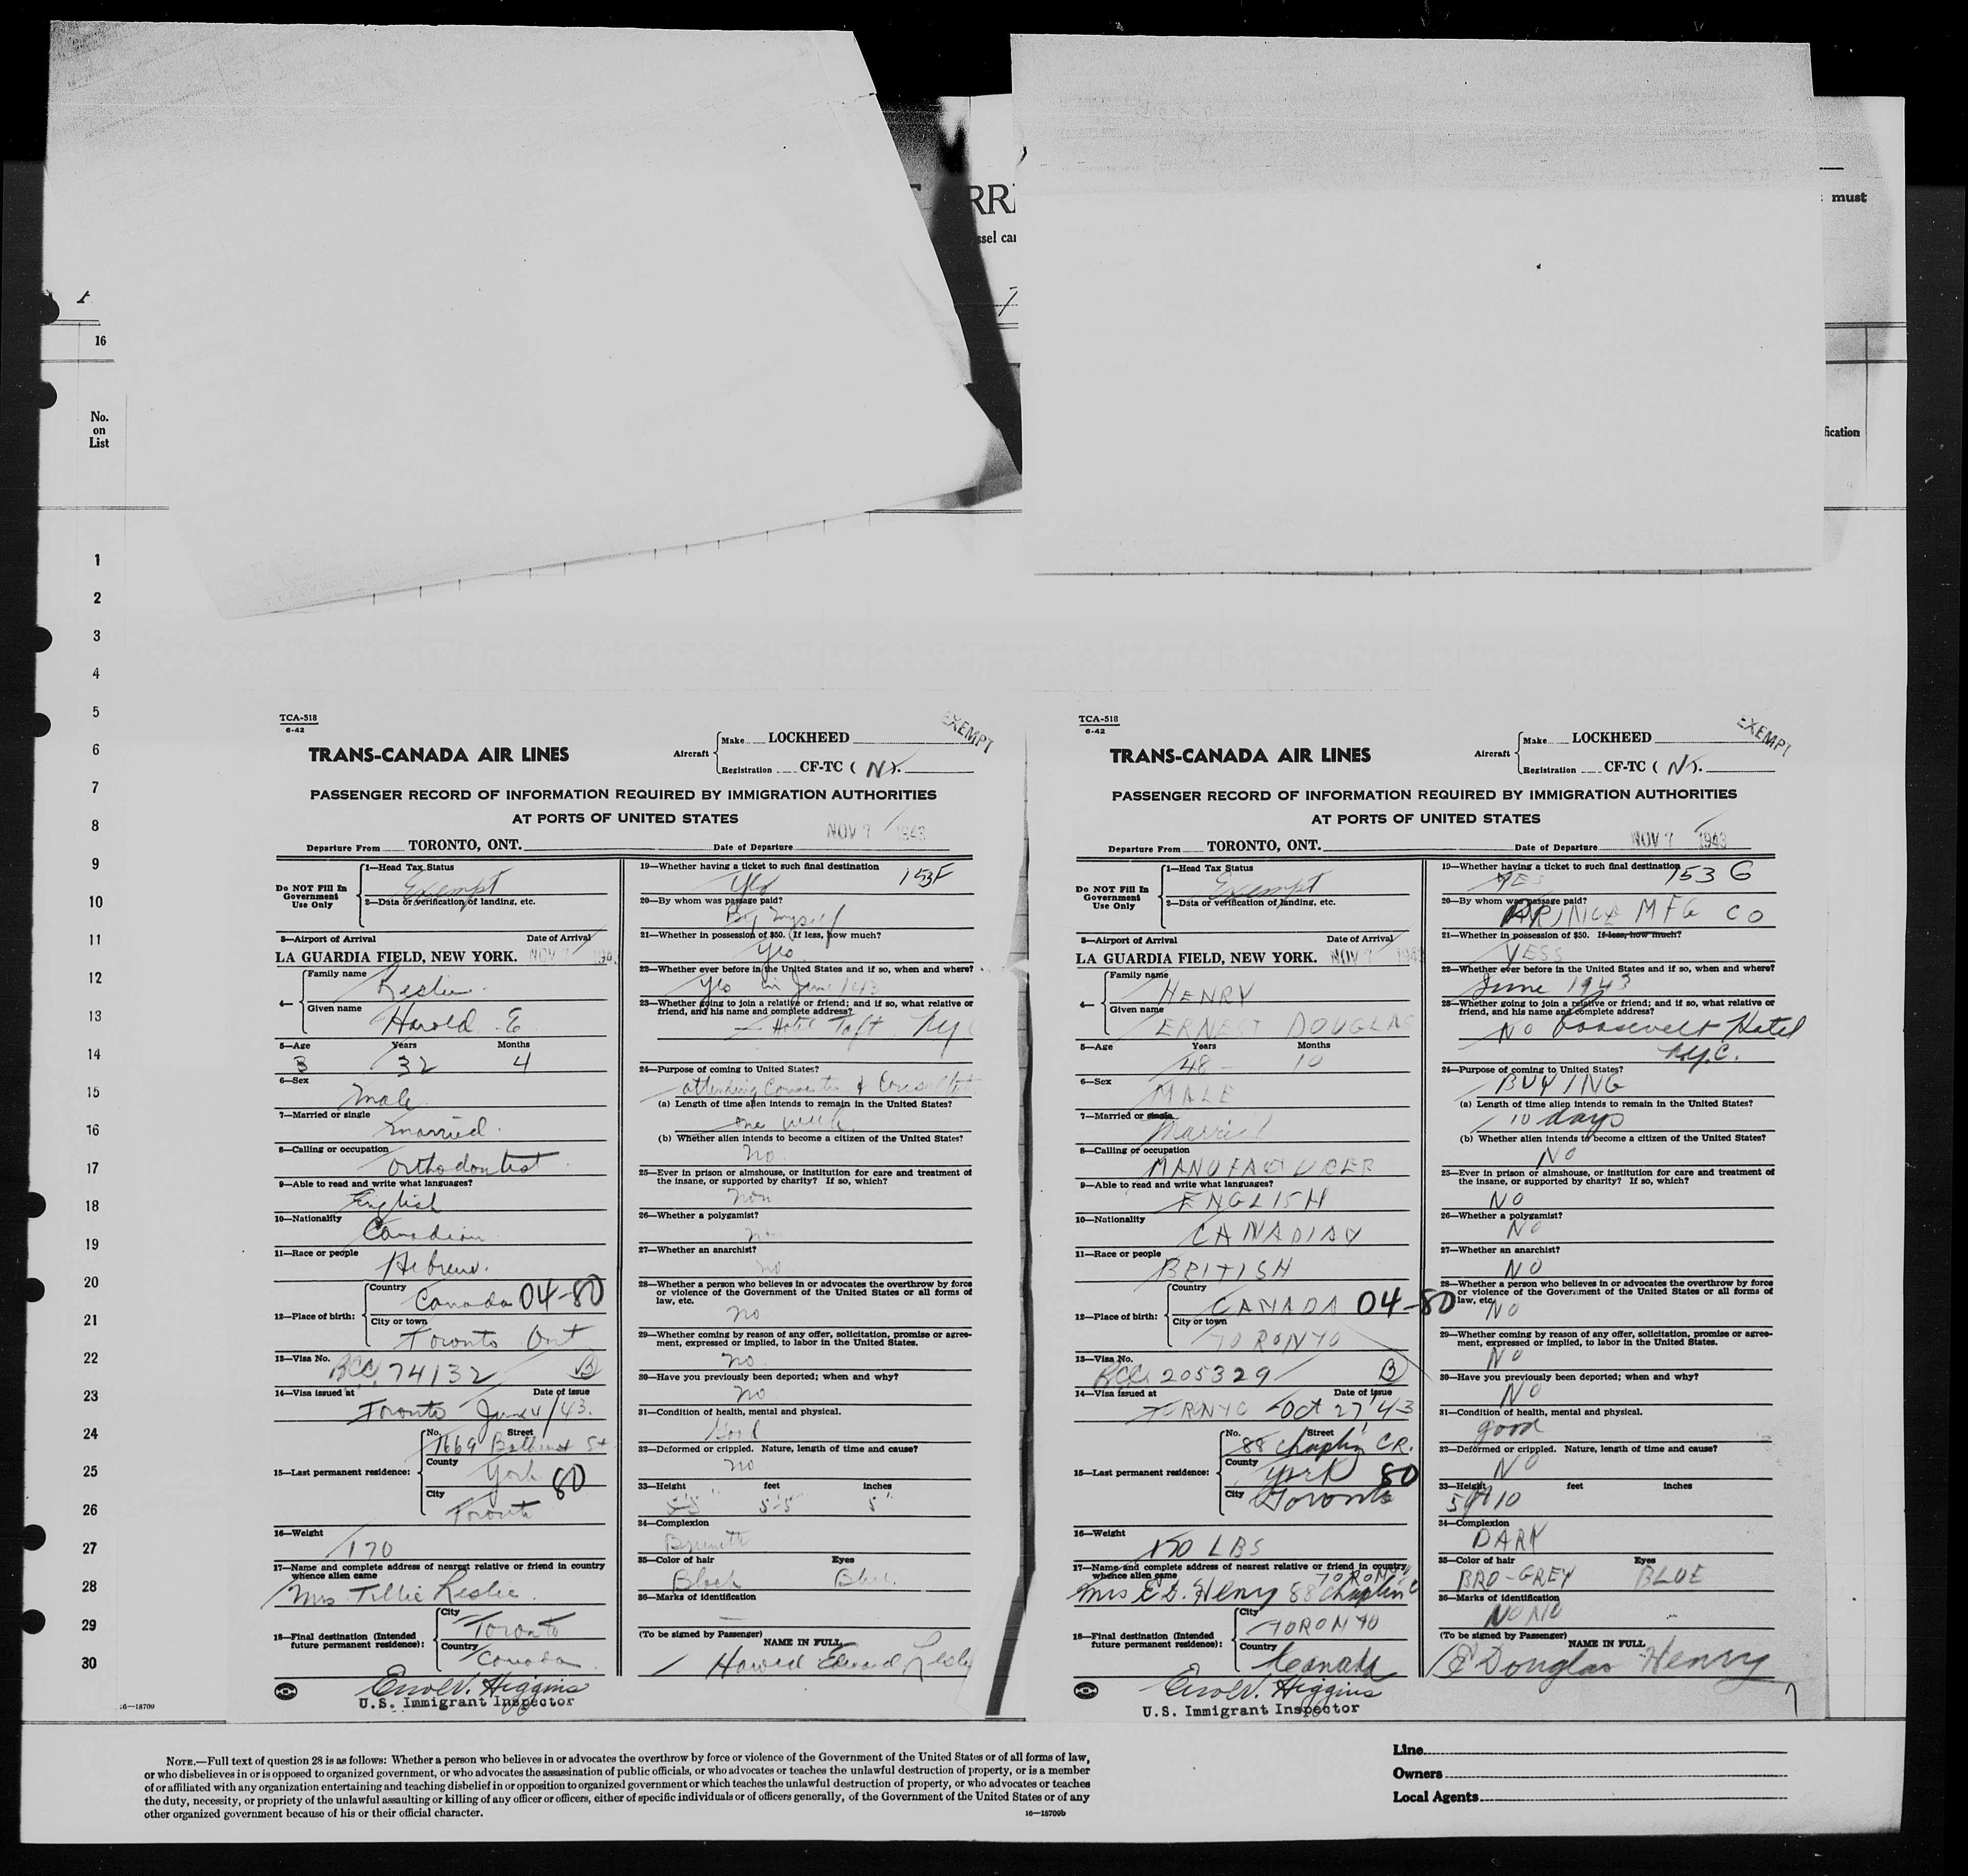 RRI
must
ssel car
16
No.
on
List
fication
1
2
3
4
5
6
7
8
9
10
11
12
13
14
15
16
17
18
19
20
21
22
23
24
25
26
27
28
29
30
16—18709
TCA-518
6-42
EXEMPT
TRANS-CANADA AIR LINES
Aircraft Make LOCKHEED
Registration CF-TC ( N ).
PASSENGER RECORD OF INFORMATION REQUIRED BY IMMIGRATION AUTHORITIES
AT PORTS OF UNITED STATES
NOV 7 1943
Departure From TORONTO, ONT. Date of Departure
Do NOT Fill In
Government
Use Only
1—Head Tax Status
Exempt
2—Data or verification of landing, etc.
3—Airport of Arrival Date of Arrival
LA GUARDIA FIELD, NEW YORK. NOV 7 194
4— Family name
Leslie
Given name
Harold E
5—Age Years Months
3 32 4
6—Sex
Male
7—Married or single
married
8—Calling or occupation
Orthodontist
9—Able to read and write what languages?
English
10—Nationality
Canadian
11—Race or people
Hebrew.
12—Place of birth: Country
Canada 04-80
City or town
Toronto Ont
13—Visa No.
BCC 74132 B
14—Visa issued at Date of issue
Toronto June 4/43.
15—Last permanent residence: No. Street
1669 Bathurst St
County
York 80
City
Toronto
16—Weight
170
17—Name and complete address of nearest relative or friend in country
whence alien came
Mrs. Tillie Leslie
18—Final destination (Intended
future permanent residence):
City
Toronto
Country
Canada
Errol V. Higgins
U.S. Immigrant Inspector
19—Whether having a ticket to such final destination
Yes 153F
20—By whom was passage paid?
By myself
21—Whether in possession of $50. (If less, how much?
Yes
22—Whether ever before in the United States and if so, when and where?
Yes in June /43
23—Whether going to join a relative or friend; and if so, what relative or
friend, and his name and complete address?
Hotel Taft NY
24—Purpose of coming to United States?
attending &
(a) Length of time alien intends to remain in the United States?
one week
(b) Whether alien intends to become a citizen of the United States?
No
25—Ever in prison or almshouse, or institution for care and treatment of
the insane, or supported by charity? If so, which?
non
26—Whether a polygamist?
27—Whether an anarchist?
no
28—Whether a person who believes in or advocates the overthrow by force
or violence of the Government of the United States or all forms of
law, etc.
no
29—Whether coming by reason of any offer, solicitation, promise or agree-
ment, expressed or implied, to labor in the United States.
no
30—Have you previously been deported; when and why?
no
31—Condition of health, mental and physical.
Good
32—Deformed or crippled. Nature, length of time and cause?
no
33—Height feet inches
5'5" 5'5 5"
34—Complexion
Brunette
35—Color of hair Eyes
Black Blue.
36—Marks of identification
(To be signed by Passenger) NAME IN FULL
Harold Edward Leslie
TCA-518
6-42
EXEMPT
TRANS-CANADA AIR LINES
Aircraft Make LOCKHEED
Registration CF-TC ( N ).
PASSENGER RECORD OF INFORMATION REQUIRED BY IMMIGRATION AUTHORITIES
AT PORTS OF UNITED STATES
NOV 7 1943
Departure From TORONTO, ONT. Date of Departure
Do NOT Fill In
Government
Use Only
1—Head Tax Status
Exempt
2—Data or verification of landing, etc.
3—Airport of Arrival Date of Arrival
LA GUARDIA FIELD, NEW YORK. NOV 7 1943
4— Family name
HENRY
Given name
ERNEST DOUGLAS
5—Age Years Months
48 10
6—Sex
MALE
7—Married or single
Married
8—Calling or occupation
MANUFACTURER
9—Able to read and write what languages?
ENGLISH
10—Nationality
CANADIAN
11—Race or people
BRITISH
12—Place of birth: Country
CANADA 04-80
City or town
TORONTO
13—Visa No.
BCC 205329 B
14—Visa issued at Date of issue
TORONTO Oct 27/43
15—Last permanent residence: No. Street
88 Chaplin CR.
County
York 80
City
Toronto
16—Weight
150 LBS
17—Name and complete address of nearest relative or friend in country
whence alien came TORONTO
Mrs E D. Henry 88 Chaplin C
18—Final destination (Intended
future permanent residence):
City
TORONTO
Country
Canada
Errol V. Higgins
U.S. Immigrant Inspector
19—Whether having a ticket to such final destination
YES 153 G
20—By whom was passage paid?
MFG CO
21—Whether in possession of $50. If less, how much?
YESS
22—Whether ever before in the United States and if so, when and where?
June 1943
23—Whether going to join a relative or friend; and if so, what relative or
friend, and his name and complete address?
NO Roosevelt Hotel
N.Y.C.
24—Purpose of coming to United States?
BUYING
(a) Length of time alien intends to remain in the United States?
10 days
(b) Whether alien intends to become a citizen of the United States?
NO
25—Ever in prison or almshouse, or institution for care and treatment of
the insane, or supported by charity? If so, which?
NO
26—Whether a polygamist?
NO
27—Whether an anarchist?
NO
28—Whether a person who believes in or advocates the overthrow by force
or violence of the Government of the United States or all forms of
law, etc.
NO
29—Whether coming by reason of any offer, solicitation, promise or agree-
ment, expressed or implied, to labor in the United States.
NO
30—Have you previously been deported; when and why?
NO
31—Condition of health, mental and physical.
good
32—Deformed or crippled. Nature, length of time and cause?
NO
33—Height feet inches
5 ft 10
34—Complexion
DARK
35—Color of hair Eyes
BRO-GREY BLUE
36—Marks of identification
NONO
(To be signed by Passenger) NAME IN FULL
E Douglas Henry
7
NOTE.—Full text of question 28 is as follows: Whether a person who believes in or advocates the overthrow by force or violence of the Government of the United States or of all forms of law,
or who disbelieves in or is opposed to organized government, or who advocates the assassination of public officials, or who advocates or teaches the unlawful destruction of property, or is a member
of or affiliated with any organization entertaining and teaching disbelief in or opposition to organized government or which teaches the unlawful destruction of property, or who advocates or teaches
the duty, necessity, or propriety of the unlawful assaulting or killing of any officer or officers, either of specific individuals or of officers generally, of the Government of the United States or of any
other organized government because of his or their official character.
16—18709b
Line
Owners
Local Agents